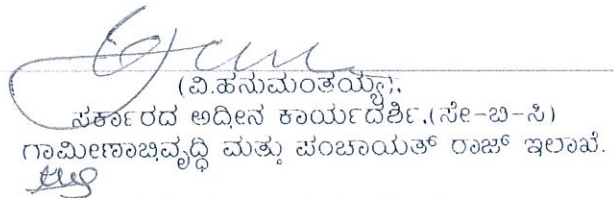 (ವಿ.ಹನುಮಂತಯ್ಯ),
ಸರ್ಕಾರದ ಅಧೀನ ಕಾರ್ಯದರ್ಶಿ,(ಸೇ-ಬಿ-ಸಿ)
ಗ್ರಾಮೀಣಾಭಿವೃದ್ಧಿ ಮತ್ತು ಪಂಚಾಯತ್ ರಾಜ್ ಇಲಾಖೆ.